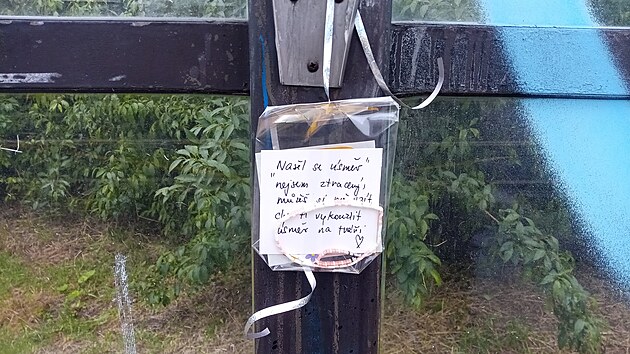 "Nasil se úsměr"
"nejsem ztracený,
můžeš si mě vzít
chci ti vykouzlit
úsměr na tváři